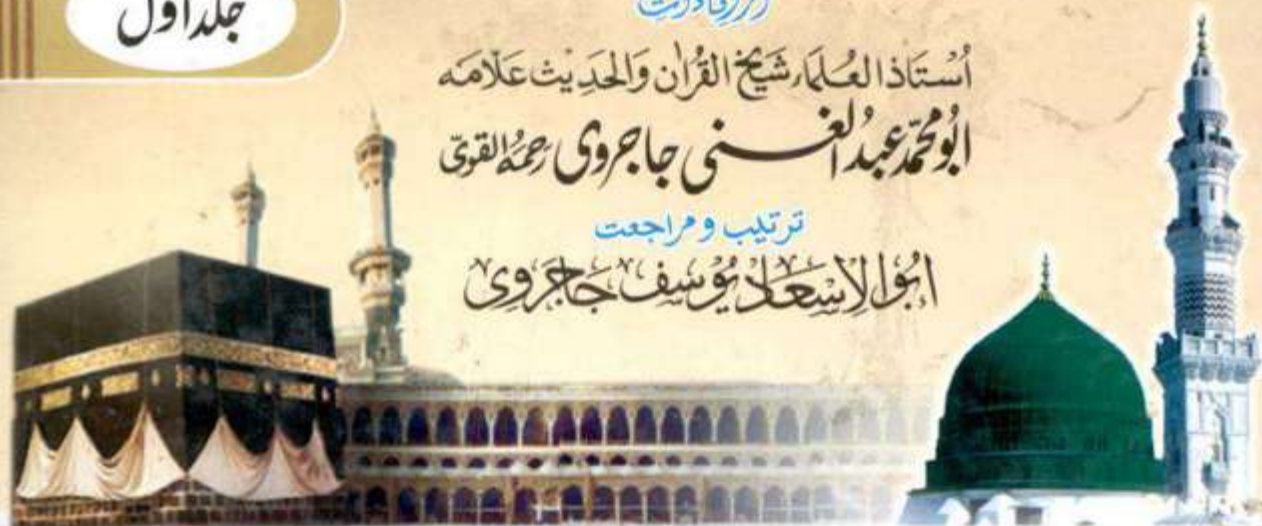 جلد اول
از افادات
اُستَاذُ العُلَمَاء شَيخُ القُرآن وَالحَدِيث عَلّامَه
ابُو محمّد عبدُ الغنی جاجروی رَحِمَہُ القَوِیّ
ترتیب و مراجعت
ابُو الاِسعَاد یُوسُف جَاجَروِی